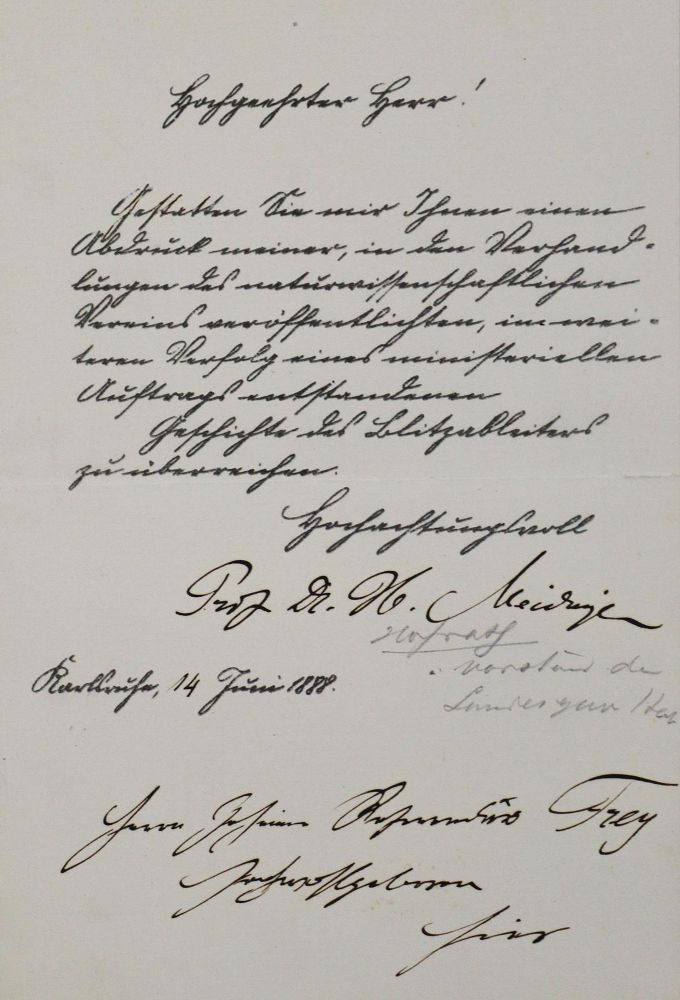 Hochgeehrter Herr!
Gestatten Sie mir Ihnen einen
Abdruck meiner, in den Verhand-
lungen des naturwissenschaftlichen
Vereins veröffentlichten, im wei-
teren Verfolg eines ministeriellen
Auftrags entstandenen
Geschichte des Blitzableiters
zu überreichen.
Hochachtungsvoll
Prof. Dr. H. Meidinger
Hofrath
Vorstand der
Landesgew
Karlsruhe, 14 Juni 1888.
Herrn Geheimen Referendär Frey
Hochwohlgeboren
hier